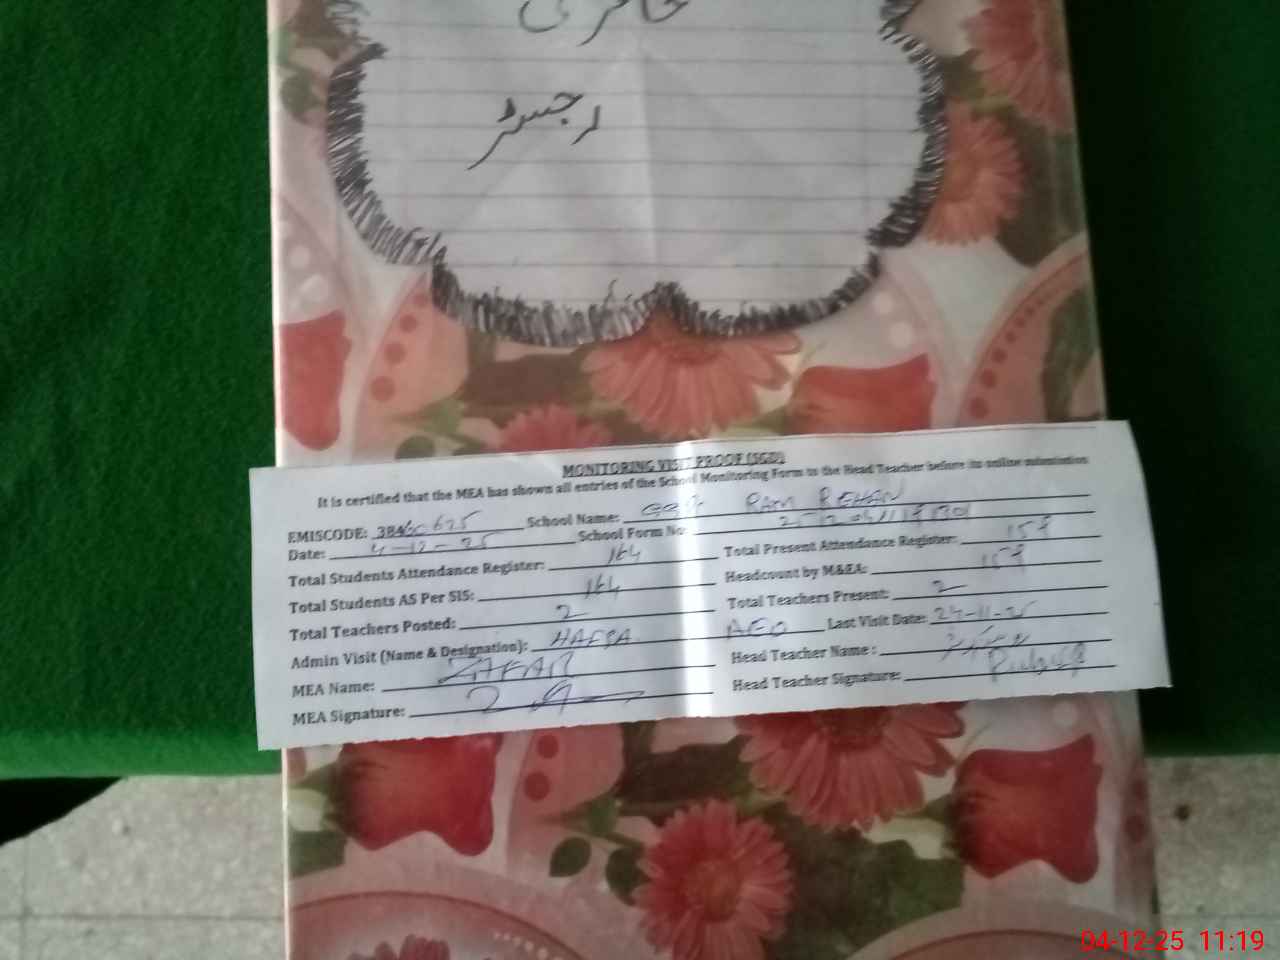 حاضری
رجسٹر
MONITORING VISIT PROOF (SGD)
It is certified that the MEA has shown all entries of the School Monitoring Form to the Head Teacher before its online submission
EMISCODE: 38460625 School Name: RAM REHAN
Date: 4-12-25 School Form No:
Total Students Attendance Register: 164 Total Present Attendance Register:
Total Students AS Per SIS: 164 Headcount by M&EA:
Total Teachers Posted: 2 Total Teachers Present: 2
Admin Visit (Name & Designation): HAFSA AEO Last Visit Date: 24-11-25
MEA Name: ZAFAR Head Teacher Name :
MEA Signature: Head Teacher Signature:
04-12-25 11:19